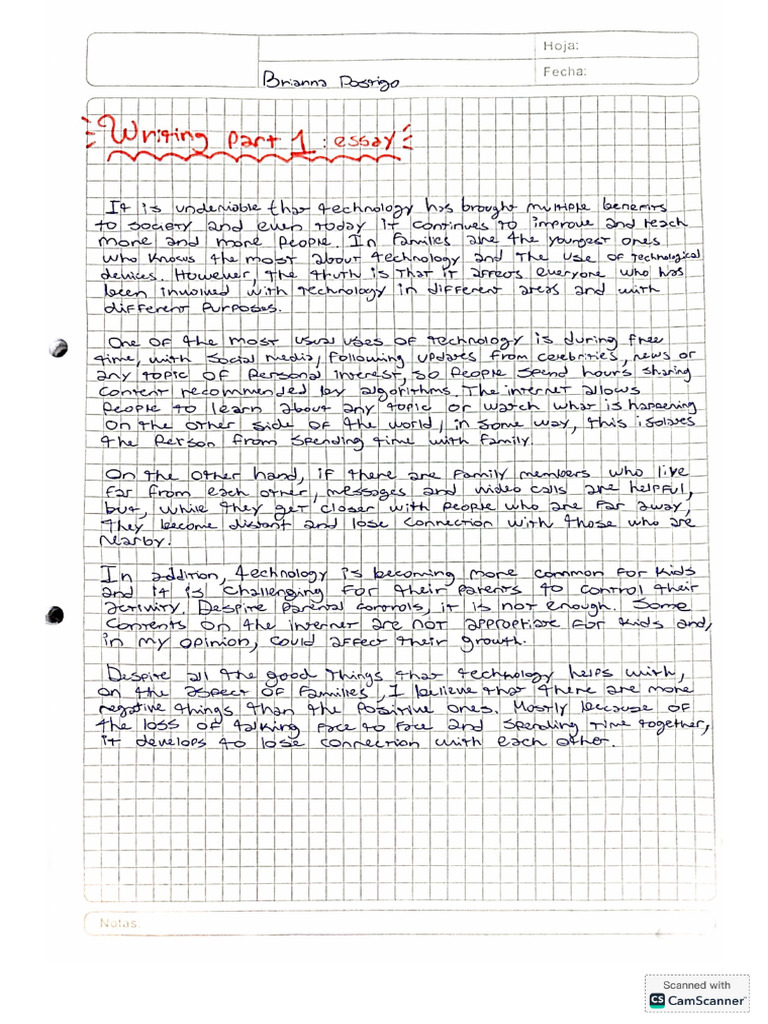 Hoja:
Fecha:
Brianna Dosrigo
Writing part 1: essay
It is undeniable that technology has brought multiple benefits
to society and even today it continues to improve and reach
more and more people. In families are the youngest ones
who knows the most about technology and the use of technological
devices. However, the truth is that it affects everyone who has
been involved with technology in different areas and with
different purposes.
One of the most usual uses of technology is during free
time, with social media, following updates from celebrities, news or
any topic of personal interest, so people spend hours sharing
content recommended by algorithms. The internet allows
people to learn about any topic or watch what is happening
on the other side of the world, in some way, this isolates
the person from spending time with family.
On the other hand, if there are family members who live
far from each other, messages and video calls are helpful,
but, while they get closer with people who are far away,
they become distant and lose connection with those who are
nearby.
In addition, technology is becoming more common for kids
and it is challenging for their parents to control their
activity. Despite parental controls, it is not enough. Some
contents on the internet are not appropriate for kids and,
in my opinion, could affect their growth.
Despite all the good things that technology helps with,
on the aspect of families, I believe that there are more
negative things than the positive ones. Mostly because of
the loss of talking face to face and spending time together,
it develops to lose connection with each other.
Notas:
Scanned with
CS CamScanner